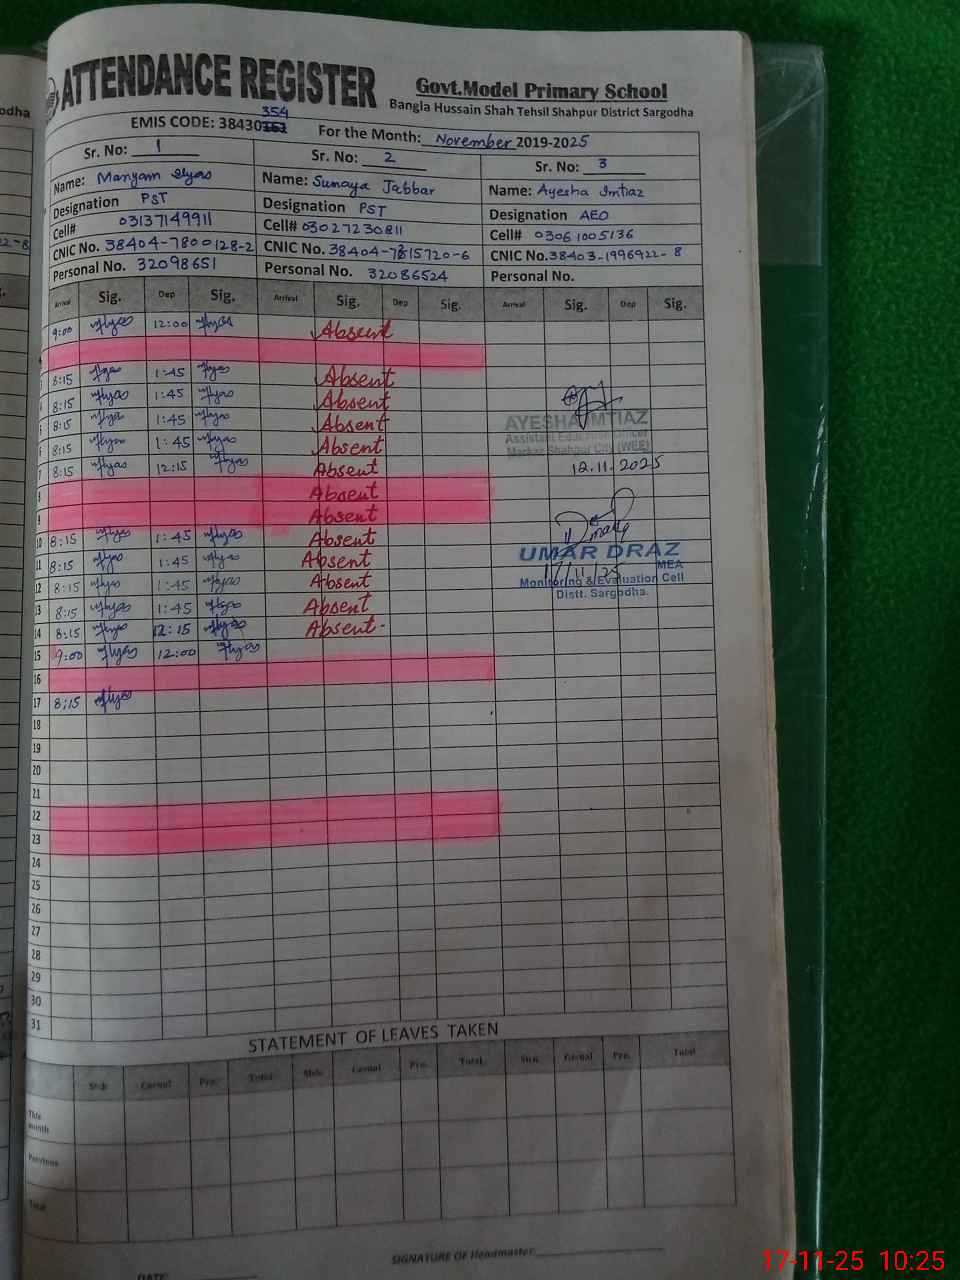 ATTENDANCE REGISTER
Govt.Model Primary School
Bangla Hussain Shah Tehsil Shahpur District Sargodha
354
EMIS CODE: 38430
For the Month: November 2019-2025
Sr. No: 1
Sr. No: 2
Sr. No: 3
Name: Maryam Ilyas
Name: Sumaya Jabbar
Name: Ayesha Imtiaz
Designation PST
Designation PST
Designation AEO
Cell# 03137149911
Cell# 03027230811
Cell# 03061005136
CNIC No. 38404-7800128-2
CNIC No. 38404-7815720-6
CNIC No. 38403-1996922-8
Personal No. 32098651
Personal No. 32086524
Personal No.
Arrival Sig. Dep Sig. Arrival Sig. Dep Sig. Arrival Sig. Dep Sig.
9:00 Ilyas 12:00 Ilyas Absent
8:15 Ilyas 1:45 Ilyas Absent
8:15 Ilyas 1:45 Ilyas Absent
8:15 Ilyas 1:45 Ilyas Absent
AYESHA IMTIAZ
Assistant Education Officer
6 8:15 Ilyas 1:45 Ilyas Absent
Markaz Shahpur City (WEE)
7 8:15 Ilyas 12:15 Ilyas Absent
12.11.2025
8 Absent
9 Absent
10 8:15 Ilyas 1:45 Ilyas Absent
11 8:15 Ilyas 1:45 Ilyas Absent
UMAR DRAZ
MEA
12 8:15 Ilyas 1:45 Ilyas Absent
17/11/25
Monitoring & Evaluation Cell
Distt. Sargodha.
13 8:15 Ilyas 1:45 Ilyas Absent
14 8:15 Ilyas 12:15 Ilyas Absent
15 9:00 Ilyas 12:00 Ilyas
16
17 8:15 Ilyas
18
19
20
21
22
23
24
25
26
27
28
29
30
31
STATEMENT OF LEAVES TAKEN
Sick Casual Pre. Total Sick Casual Pre. Total Sick Casual Pre. Total
This month
Previous
Total
SIGNATURE OF Headmaster
DATE
17-11-25 10:25